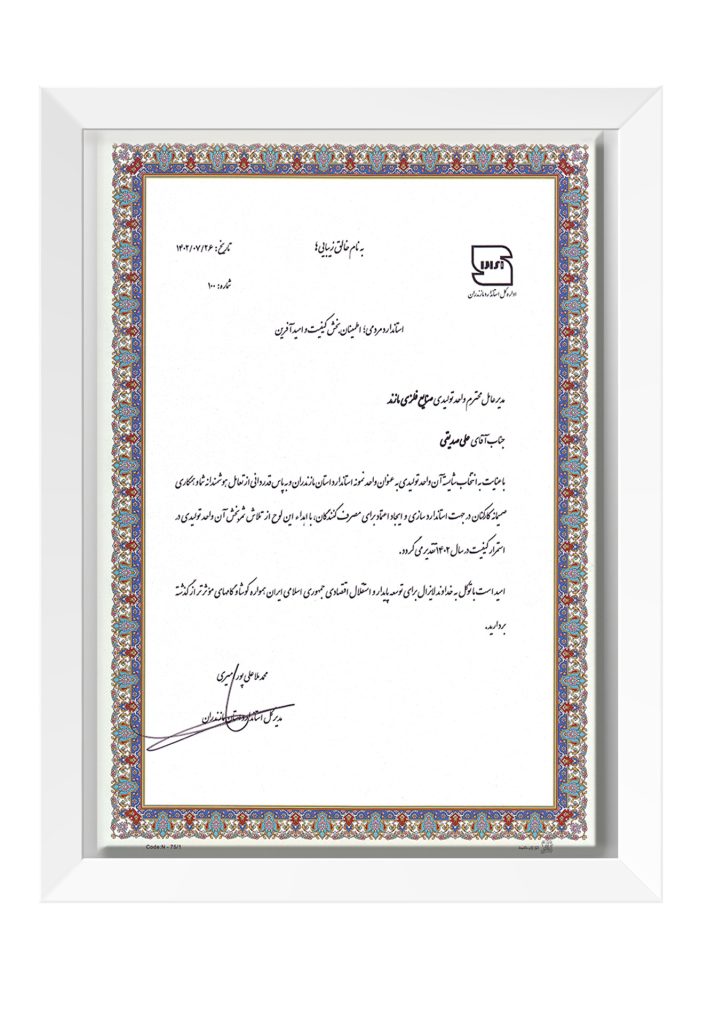 به نام خالق زیبایی‌ها
تاریخ: ۱۴۰۲/۰۷/۲۶
شماره: ۱۰۰
اداره کل استاندارد مازندران
استاندارد مردمی؛ اطمینان بخش کیفیت و امید آفرین
مدیرعامل محترم واحد تولیدی صنایع فلزی مازند
جناب آقای علی صدیقی
با عنایت به انتخاب شایسته آن واحد تولیدی به عنوان واحد نمونه استاندارد استان مازندران و به پاس قدردانی از تعامل هوشمندانه شما و همکاری
صمیمانه کارکنان در جهت استانداردسازی و ایجاد اعتماد برای مصرف کنندگان، با اهداء این لوح از تلاش ثمربخش آن واحد تولیدی در
استمرار کیفیت در سال ۱۴۰۲ تقدیر می گردد.
امید است با توکل به خداوند لایزال برای توسعه پایدار و استقلال اقتصادی جمهوری اسلامی ایران همواره کوشا و گامهای مؤثرتر از گذشته
بردارید.
محمد ملاعلی پور امیری
مدیر کل استاندارد استان مازندران
Code:N - 75/1